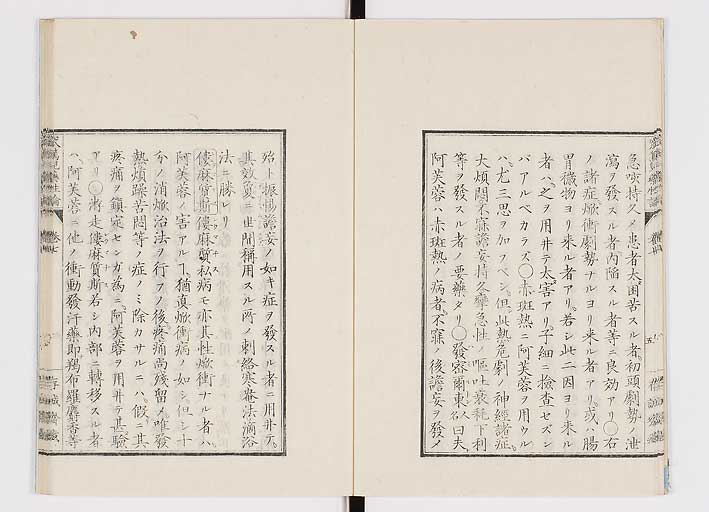 急咳持久ノ患者太困苦スル者初頭劇勢ノ泄
瀉ヲ發スル者内陥スル者等ニ良効アリ〇右
ノ諸症焮衝劇勢ナルヨリ来ル者アリ或ハ腸
胃穢物ヨリ来ル者アリ若シ此二因ヨリ来ル
者ハ之ヲ用井テ太害アリ子細ニ檢査セズン
バアルベカラズ〇赤斑熱ニ阿芙蓉ヲ用ウル
ハ尤三思ヲ加フベシ但シ此熱危劇ノ神經諸症
大煩悶不寐譫妄持久攣急性ノ嘔吐衰耗下利
等ヲ發スル者ノ要藥タリ〇發察爾東名人曰夫
阿芙蓉ハ赤斑熱ノ病者不寐ノ後譫妄ヲ發ノ
殆ト振惕譫妄ノ如キ症ヲ發スル者ニ用井テ
其效夐ニ世間稱用スル所ノ刺絡寒罨法滴浴
法ニ勝レリ
僂麻質斯 僂麻質私病モ亦其性焮衝ナル者ハ
阿芙蓉ノ害アルヿ猶眞焮衝病ノ如シ但シ十
分ノ消焮治法ヲ行フノ後疼痛尚殘留ノ唯發
熱煩躁苦悶等ノ症ノミ除カサルニハ假ニ其
疼痛ヲ鎮定センガ為ニ阿芙蓉ヲ用井テ甚驗
アリ〇奔走僂麻質斯若シ内部ニ轉移スル者
ハ阿芙蓉ニ他ノ衝動發汗藥即羯布羅麝香等